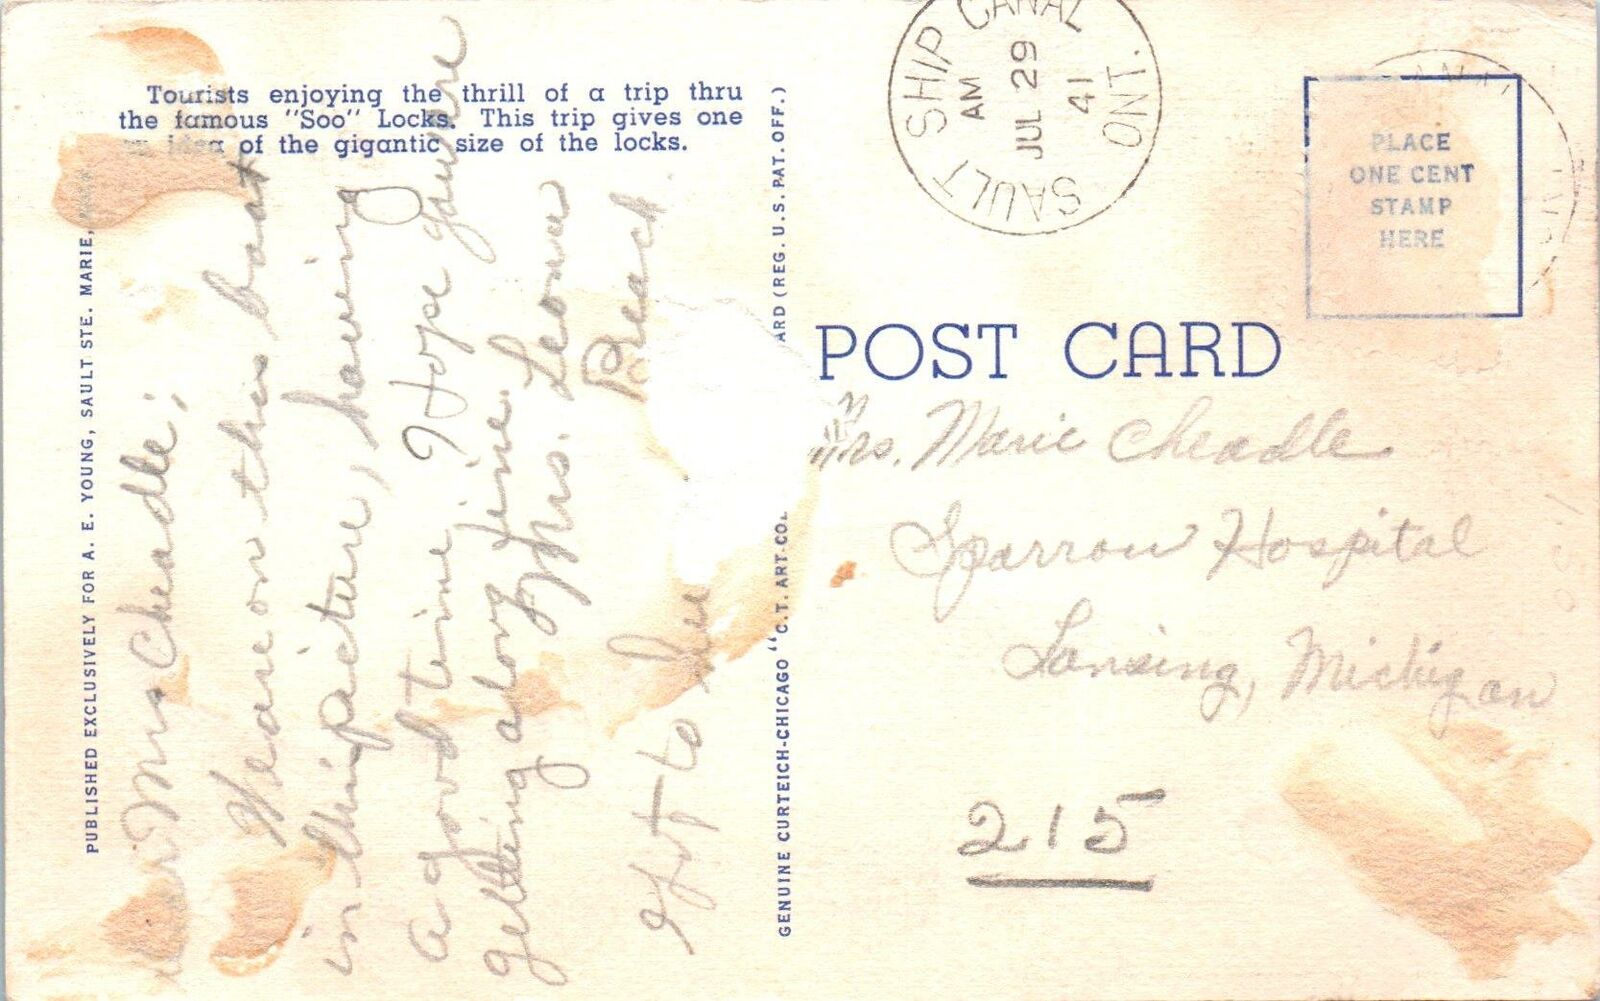 Tourists enjoying the thrill of a trip thru
the famous "Soo" Locks. This trip gives one
an idea of the gigantic size of the locks.
PUBLISHED EXCLUSIVELY FOR A. E. YOUNG, SAULT STE. MARIE,
Mrs Cheadle;
We are on this boat
in this picture, having
a good time. Hope you're
getting along fine.
Mrs. Leona
to see
GENUINE CURTEICH-CHICAGO "C. T. ART-COL
ARD (REG. U.S. PAT. OFF.)
SAULT SHIP CANAL ONT.
AM
JUL 29
41
PLACE
ONE CENT
STAMP
HERE
POST CARD
Mrs. Marie Cheadle
Sparrow Hospital
Lansing, Michigan
215